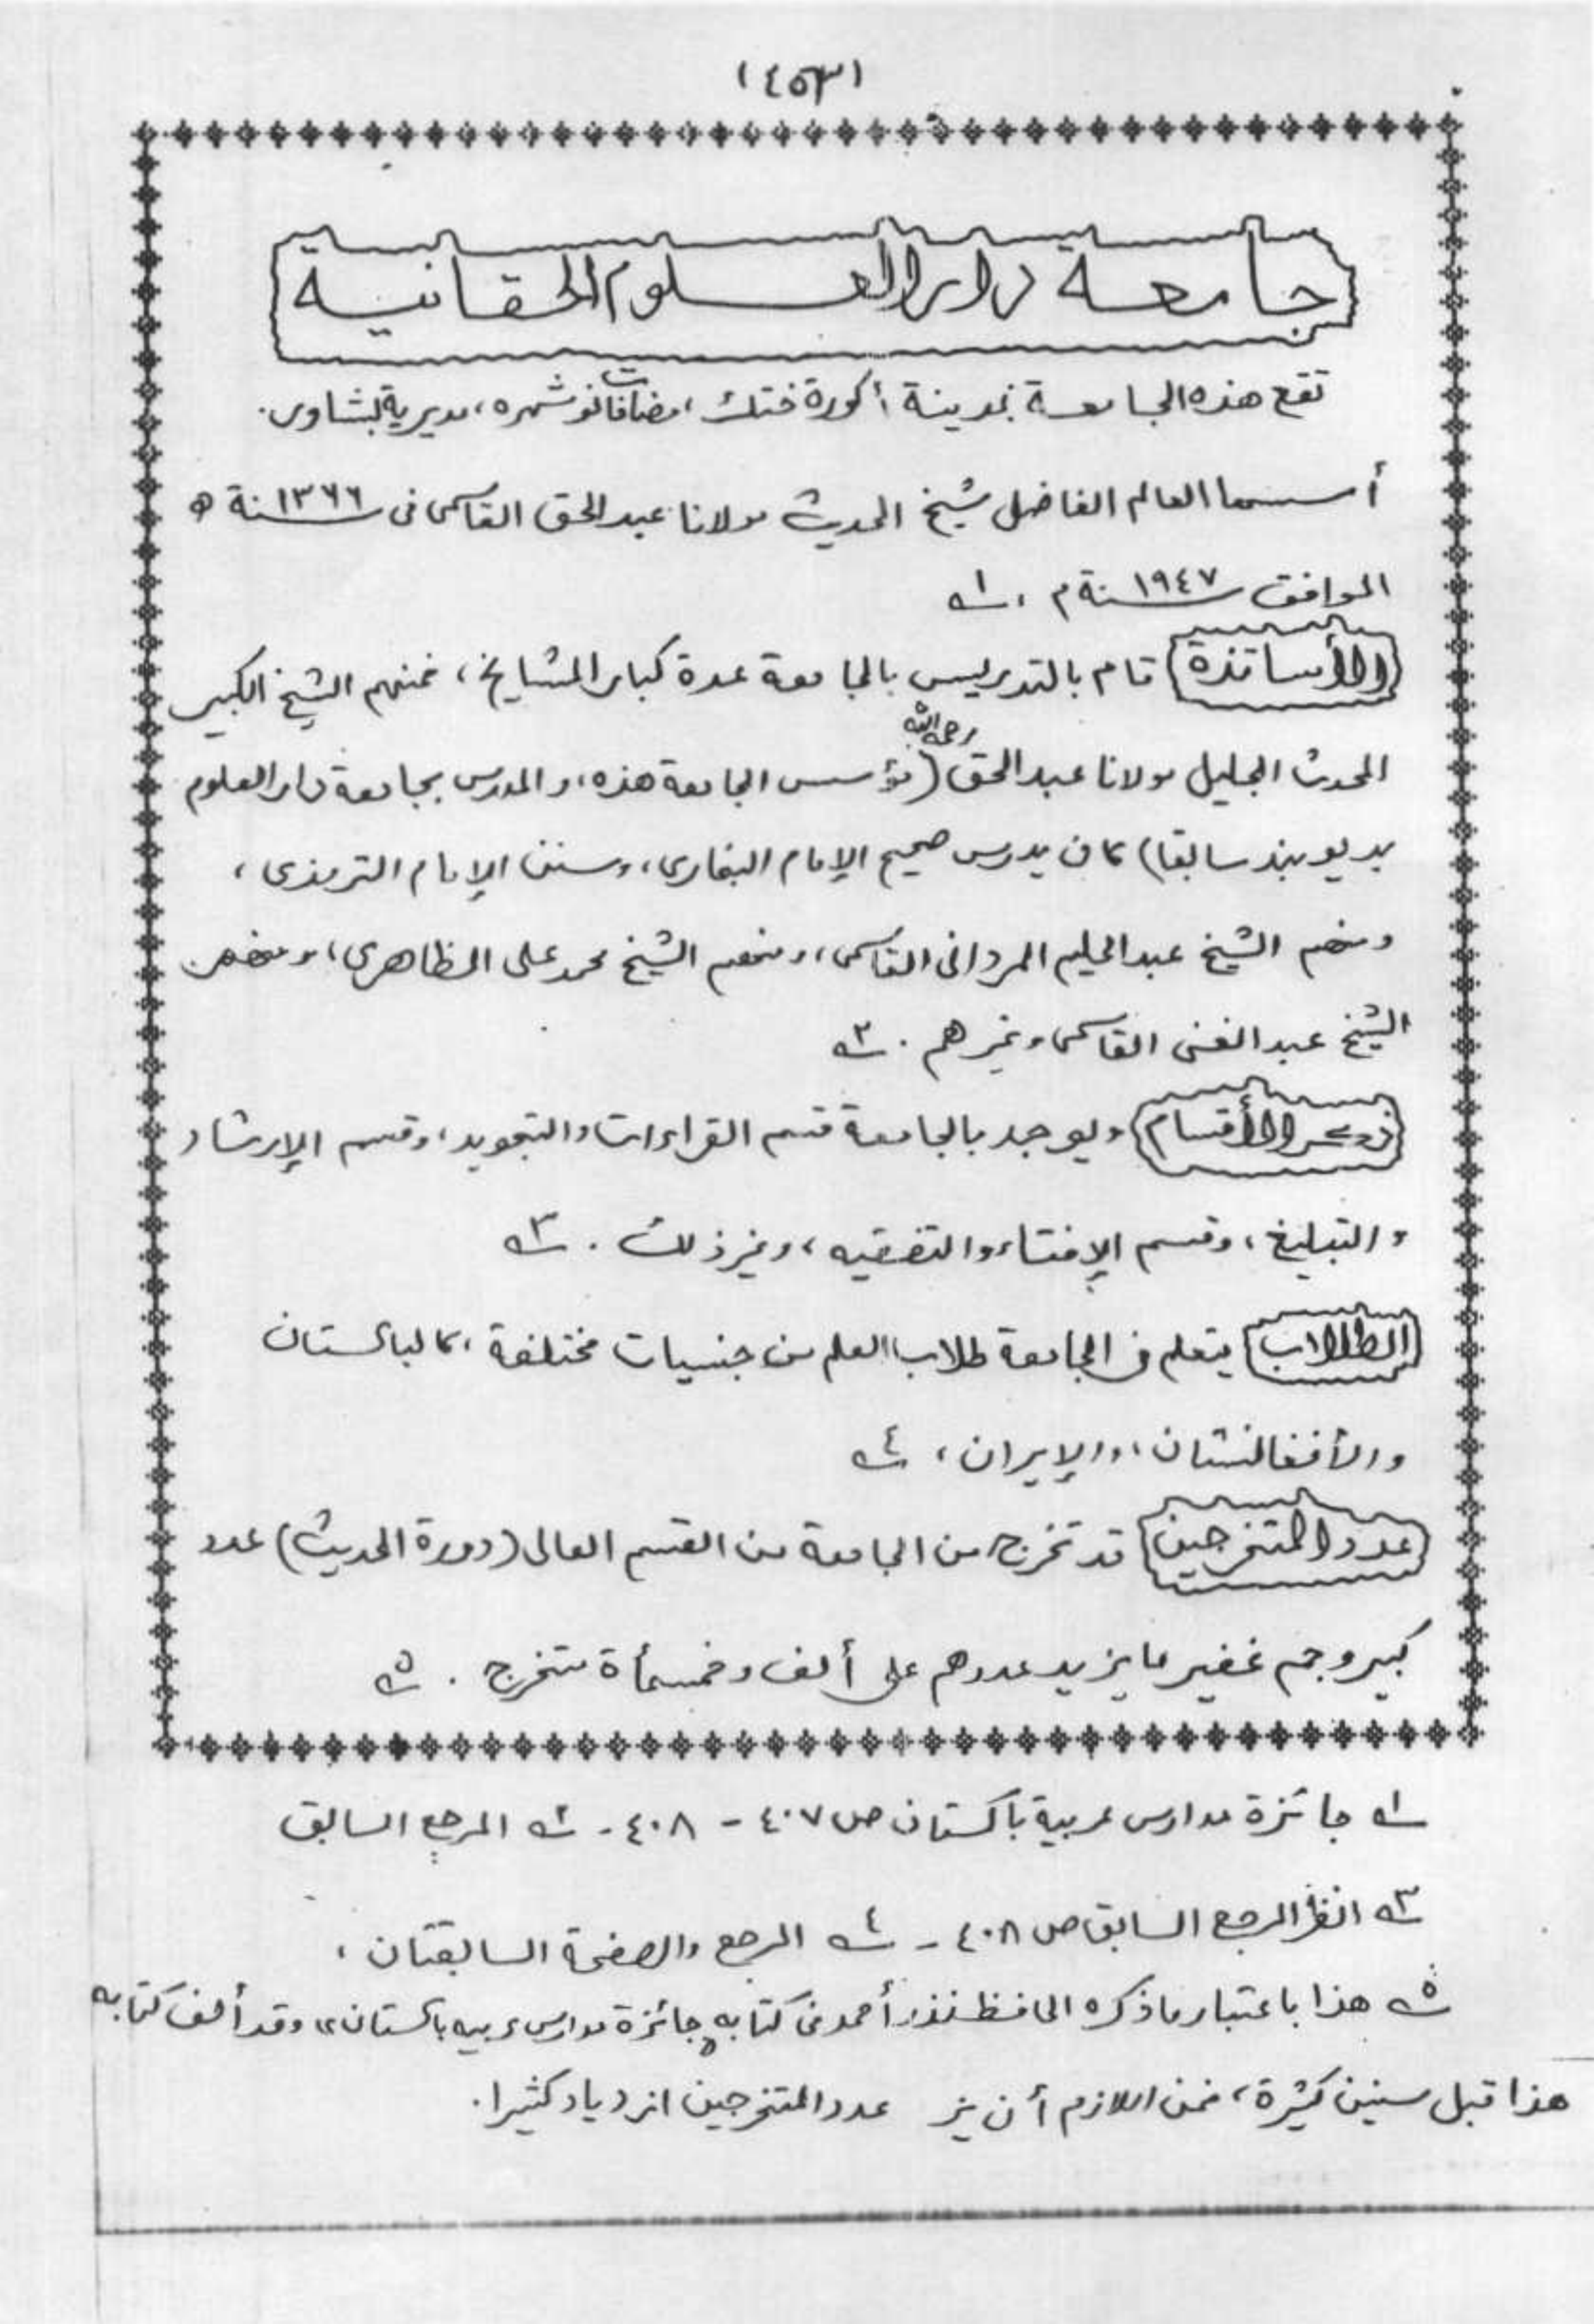 (٤٥٣)
جامعة دار العلوم الحقانية
تقع هذه الجامعة بمدينة أكورة ختك، مضافات نوشهره، مديرية بشاور.
أسسها العالم الفاضل شيخ الحديث مولانا عبد الحق القاسمى فى سنة ١٣٦٦ ه
الموافق سنة ١٩٤٧ م . ١ـه
الأساتذة قام بالتدريس بالجامعة عدة كبار المشايخ، فمنهم الشيخ الكبير
المحدث الجليل مولانا عبد الحق رحمه الله (مؤسس الجامعة هذه، والمدرس بجامعة دار العلوم
بديوبند سابقا) كان يدرس صحيح الإمام البخاري، وسنن الإمام الترمذى،
ومنهم الشيخ عبد الحليم المردانى القاسمى، ومنهم الشيخ محمد على المظاهرى، ومنهم
الشيخ عبد الغنى القاسمى وغيرهم . ٢ـه
ذكر الأقسام ويوجد بالجامعة قسم القراءات والتجويد، وقسم الإرشاد
والتبليغ، وقسم الإفتاء والتفقيه، وغير ذلك . ٣ـه
الطلاب يتعلم فى الجامعة طلاب العلم من جنسيات مختلفة، كالباكستان
والأفغانستان، والإيران، ٤ـه
عدد المتخرجين قد تخرج من الجامعة من القسم العالى (دورة الحديث) عدد
كبير وجم غفير ما يزيد عددهم على ألف وخمسمأة متخرج . ٥ـه
١ـه جائزة مدارس عربية باكستان ص ٤٠٧ - ٤٠٨ - ٢ـه المرجع السابق
٣ـه انظر المرجع السابق ص ٤٠٨ - ٤ـه المرجع والصفحة السابقتان،
٥ـه هذا باعتبار ما ذكره الحافظ نذر أحمد فى كتابه جائزة مدارس عربيه باكستان، وقد ألف كتابه
هذا قبل سنين كثيرة، فمن اللازم أن يز عدد المتخرجين ازدياد كثيرا.